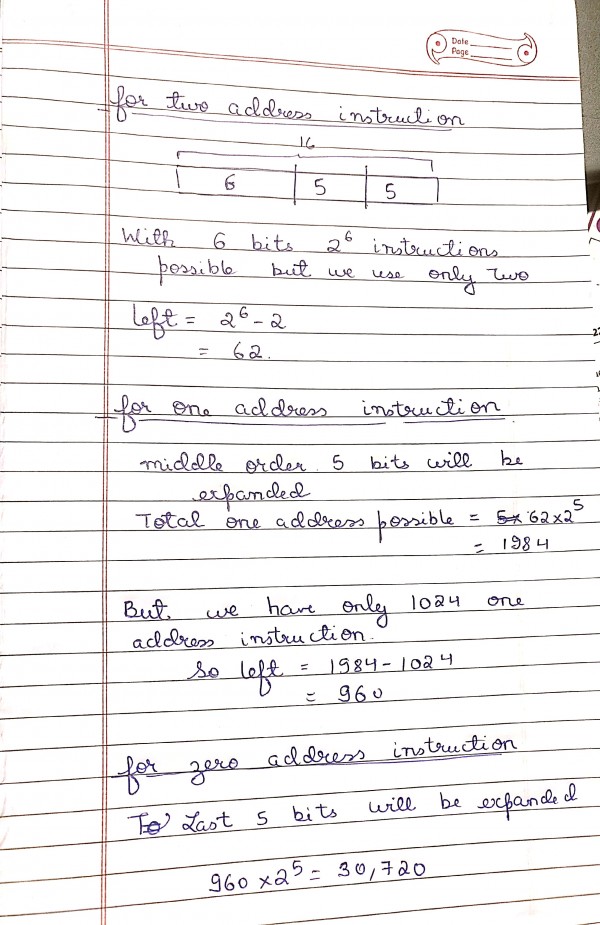 Date
Page
for two address instruction
16
6 5 5
With 6 bits 2⁶ instructions
possible but we use only two
left = 2⁶ - 2
= 62.
for one address instruction
middle order 5 bits will be
expanded
Total one address possible = 62x2⁵
= 1984
But, we have only 1024 one
address instruction.
So left = 1984 - 1024
= 960
for zero address instruction
Last 5 bits will be expanded
960 x 2⁵ = 30,720